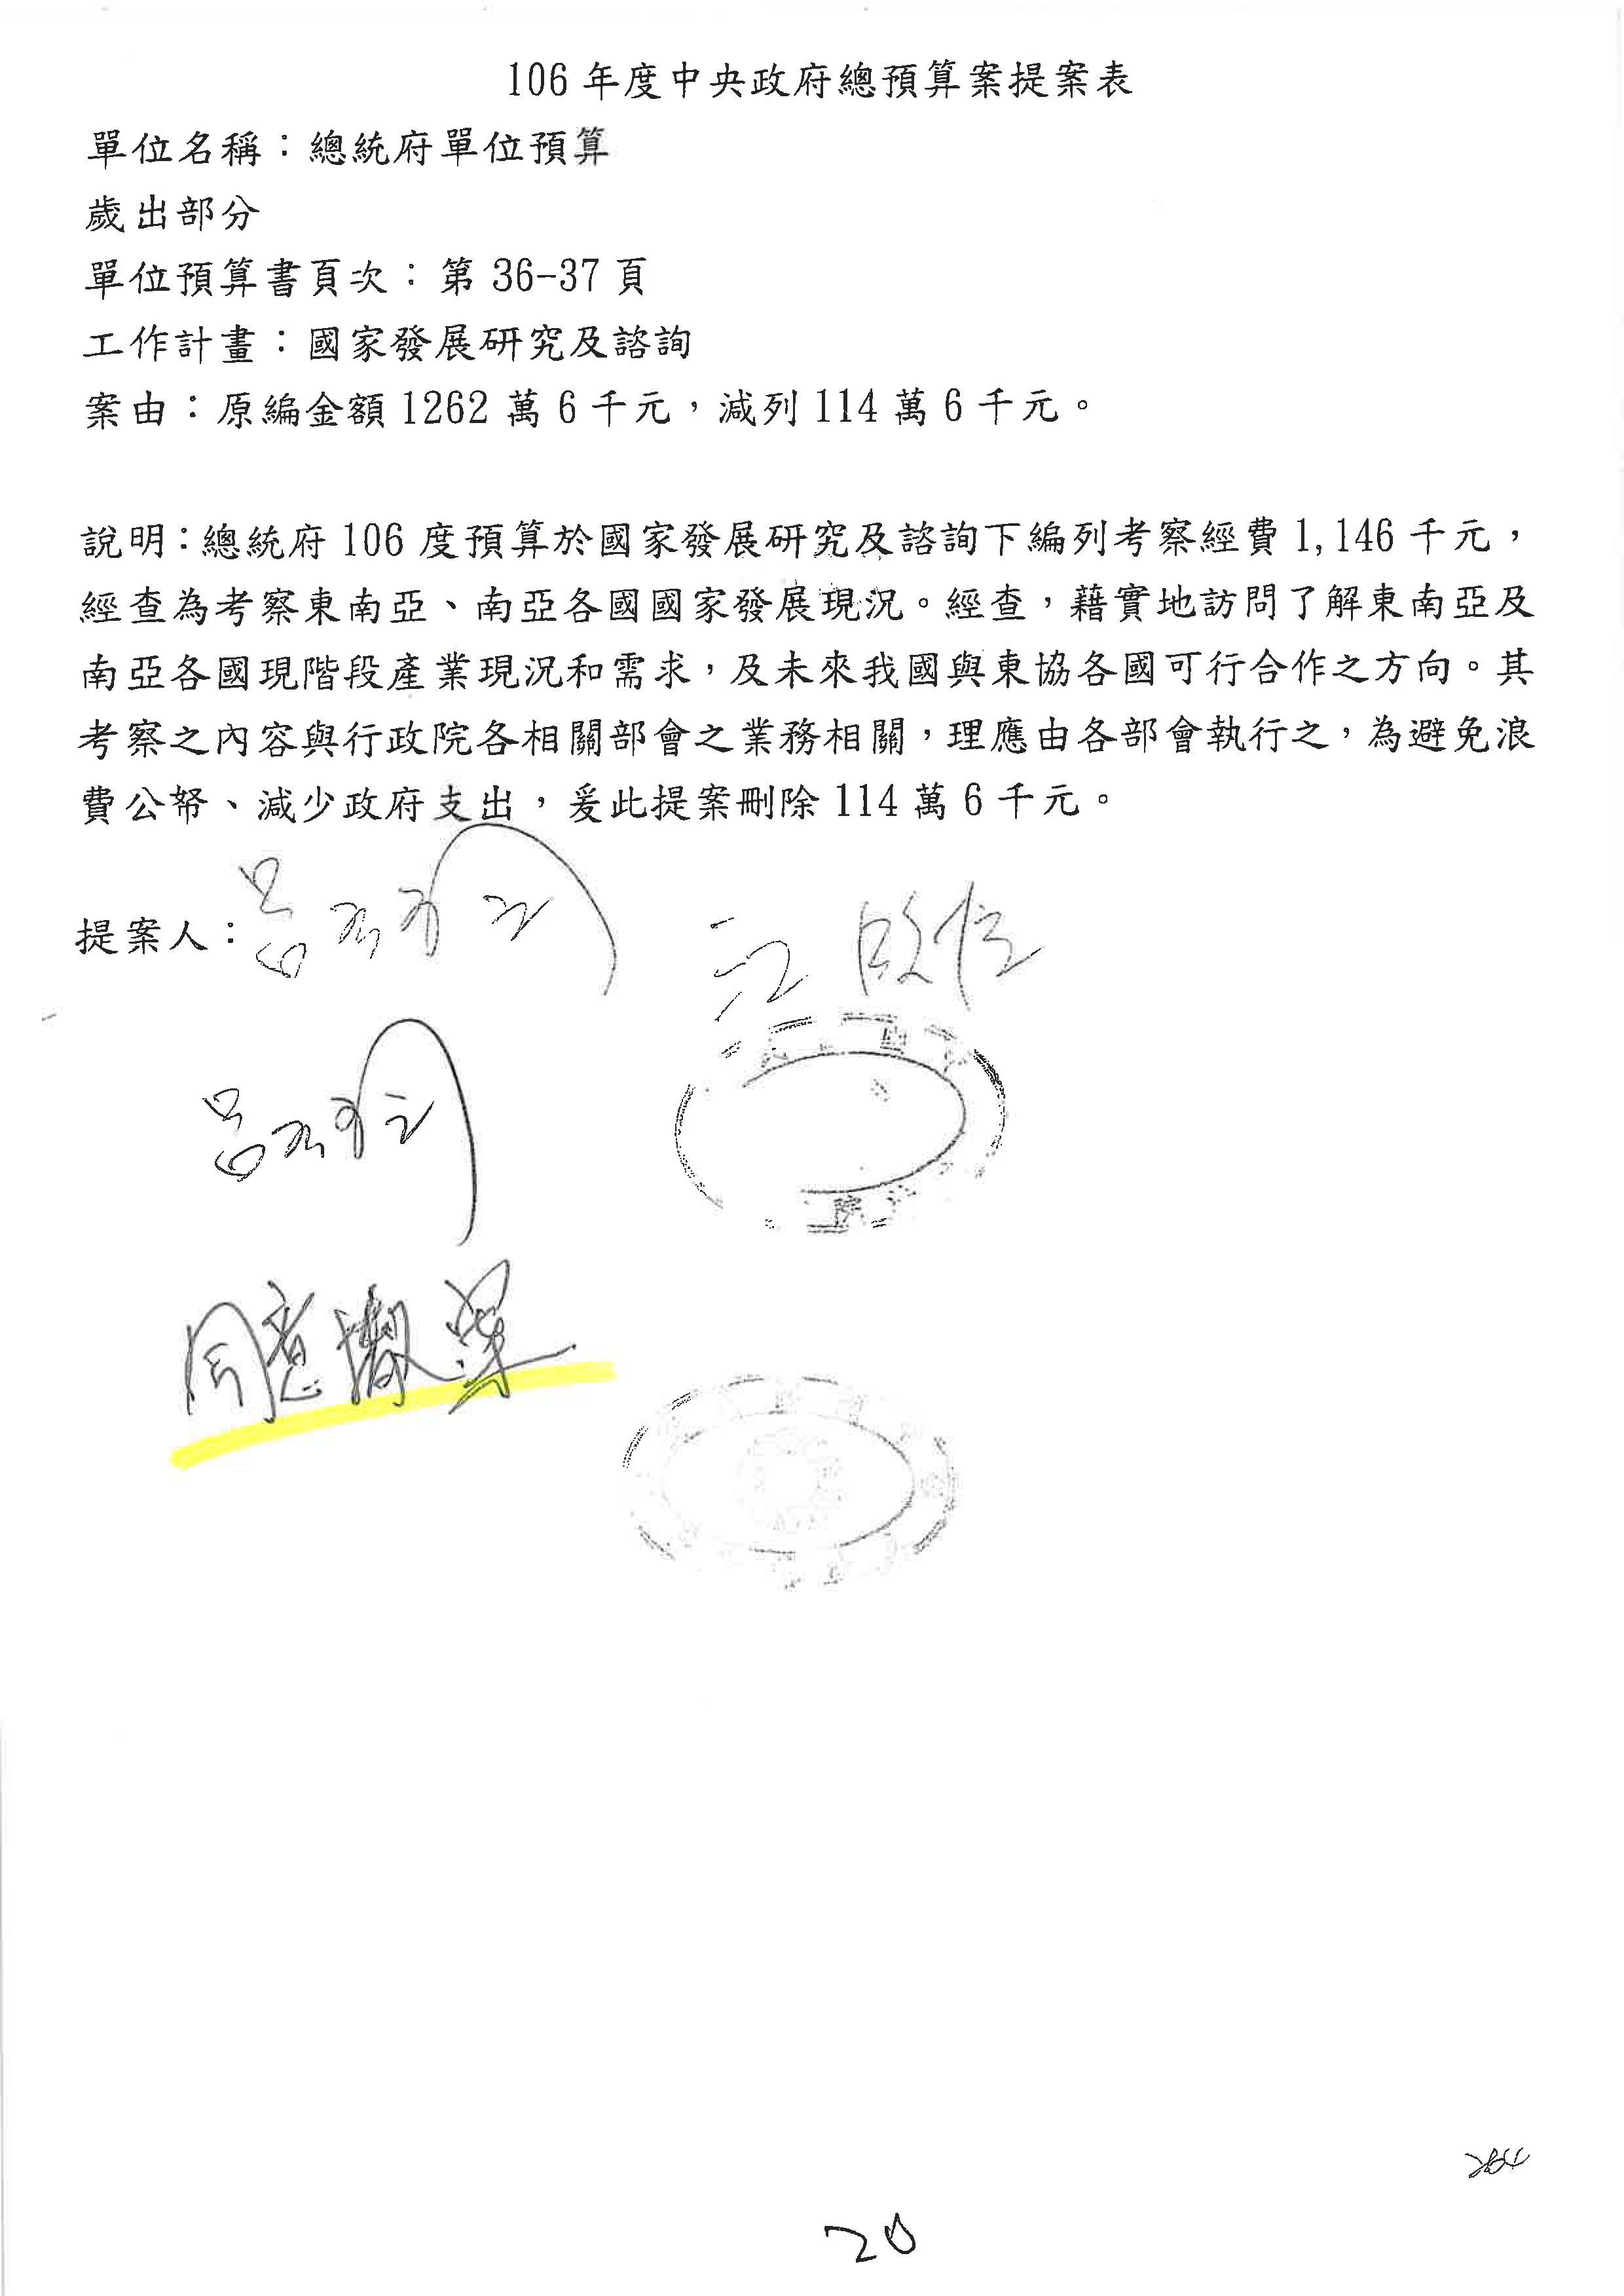 106年度中央政府總預算案提案表
單位名稱：總統府單位預算
歲出部分
單位預算書頁次：第36-37頁
工作計畫：國家發展研究及諮詢
案由：原編金額1262萬6千元，減列114萬6千元。
說明：總統府106度預算於國家發展研究及諮詢下編列考察經費1,146千元，
經查為考察東南亞、南亞各國國家發展現況。經查，藉實地訪問了解東南亞及
南亞各國現階段產業現況和需求，及未來我國與東協各國可行合作之方向。其
考察之內容與行政院各相關部會之業務相關，理應由各部會執行之，為避免浪
費公帑、減少政府支出，爰此提案刪除114萬6千元。
提案人：
江啟臣
同意撤案
20